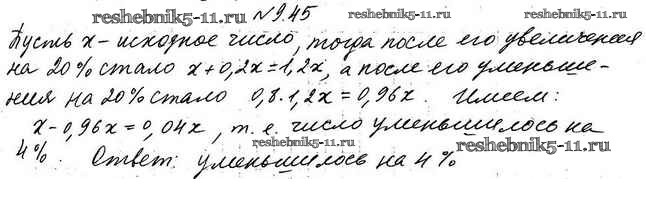 reshebnik5-11.ru №9.45 reshebnik5-11.ru
Пусть x - исходное число, тогда после его увеличения
на 20% стало x+0,2x=1,2x, а после его уменьше-
ния на 20% стало 0,8·1,2x=0,96x. Имеем:
x-0,96x=0,04x, т.е. число уменьшилось на
4%. Ответ: уменьшилось на 4%
reshebnik5-11.ru reshebnik5-11.ru